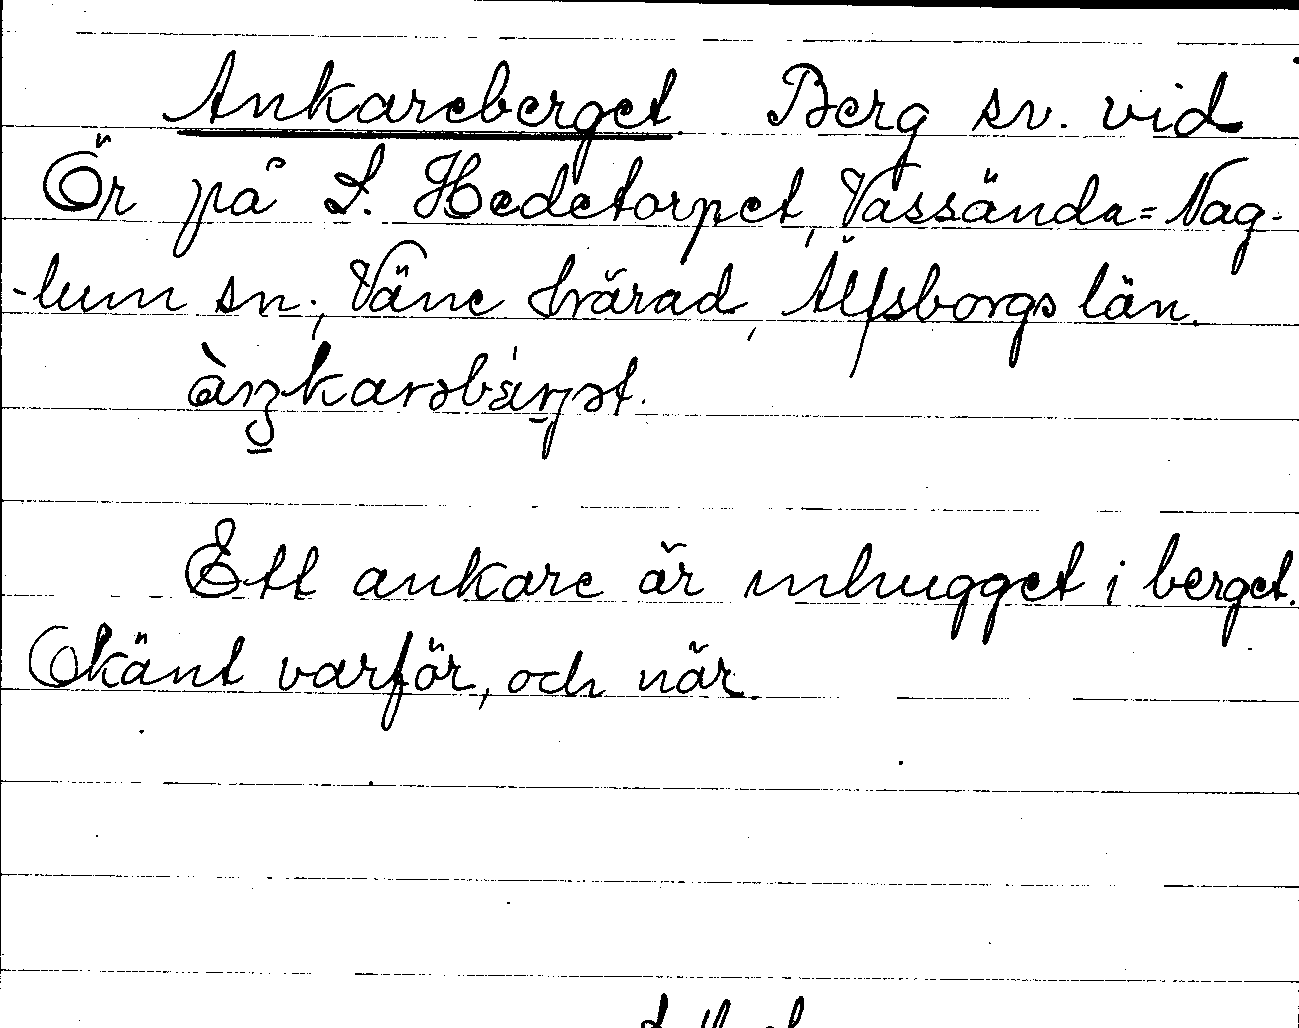 Ankareberget Berg sv. vid
Ör på S. Hedetorpet, Vassända=Nag-
-lum sn., Väne härad, Älfsborgs län.
Ett ankare är inhugget i berget.
Okänt varför, och när.